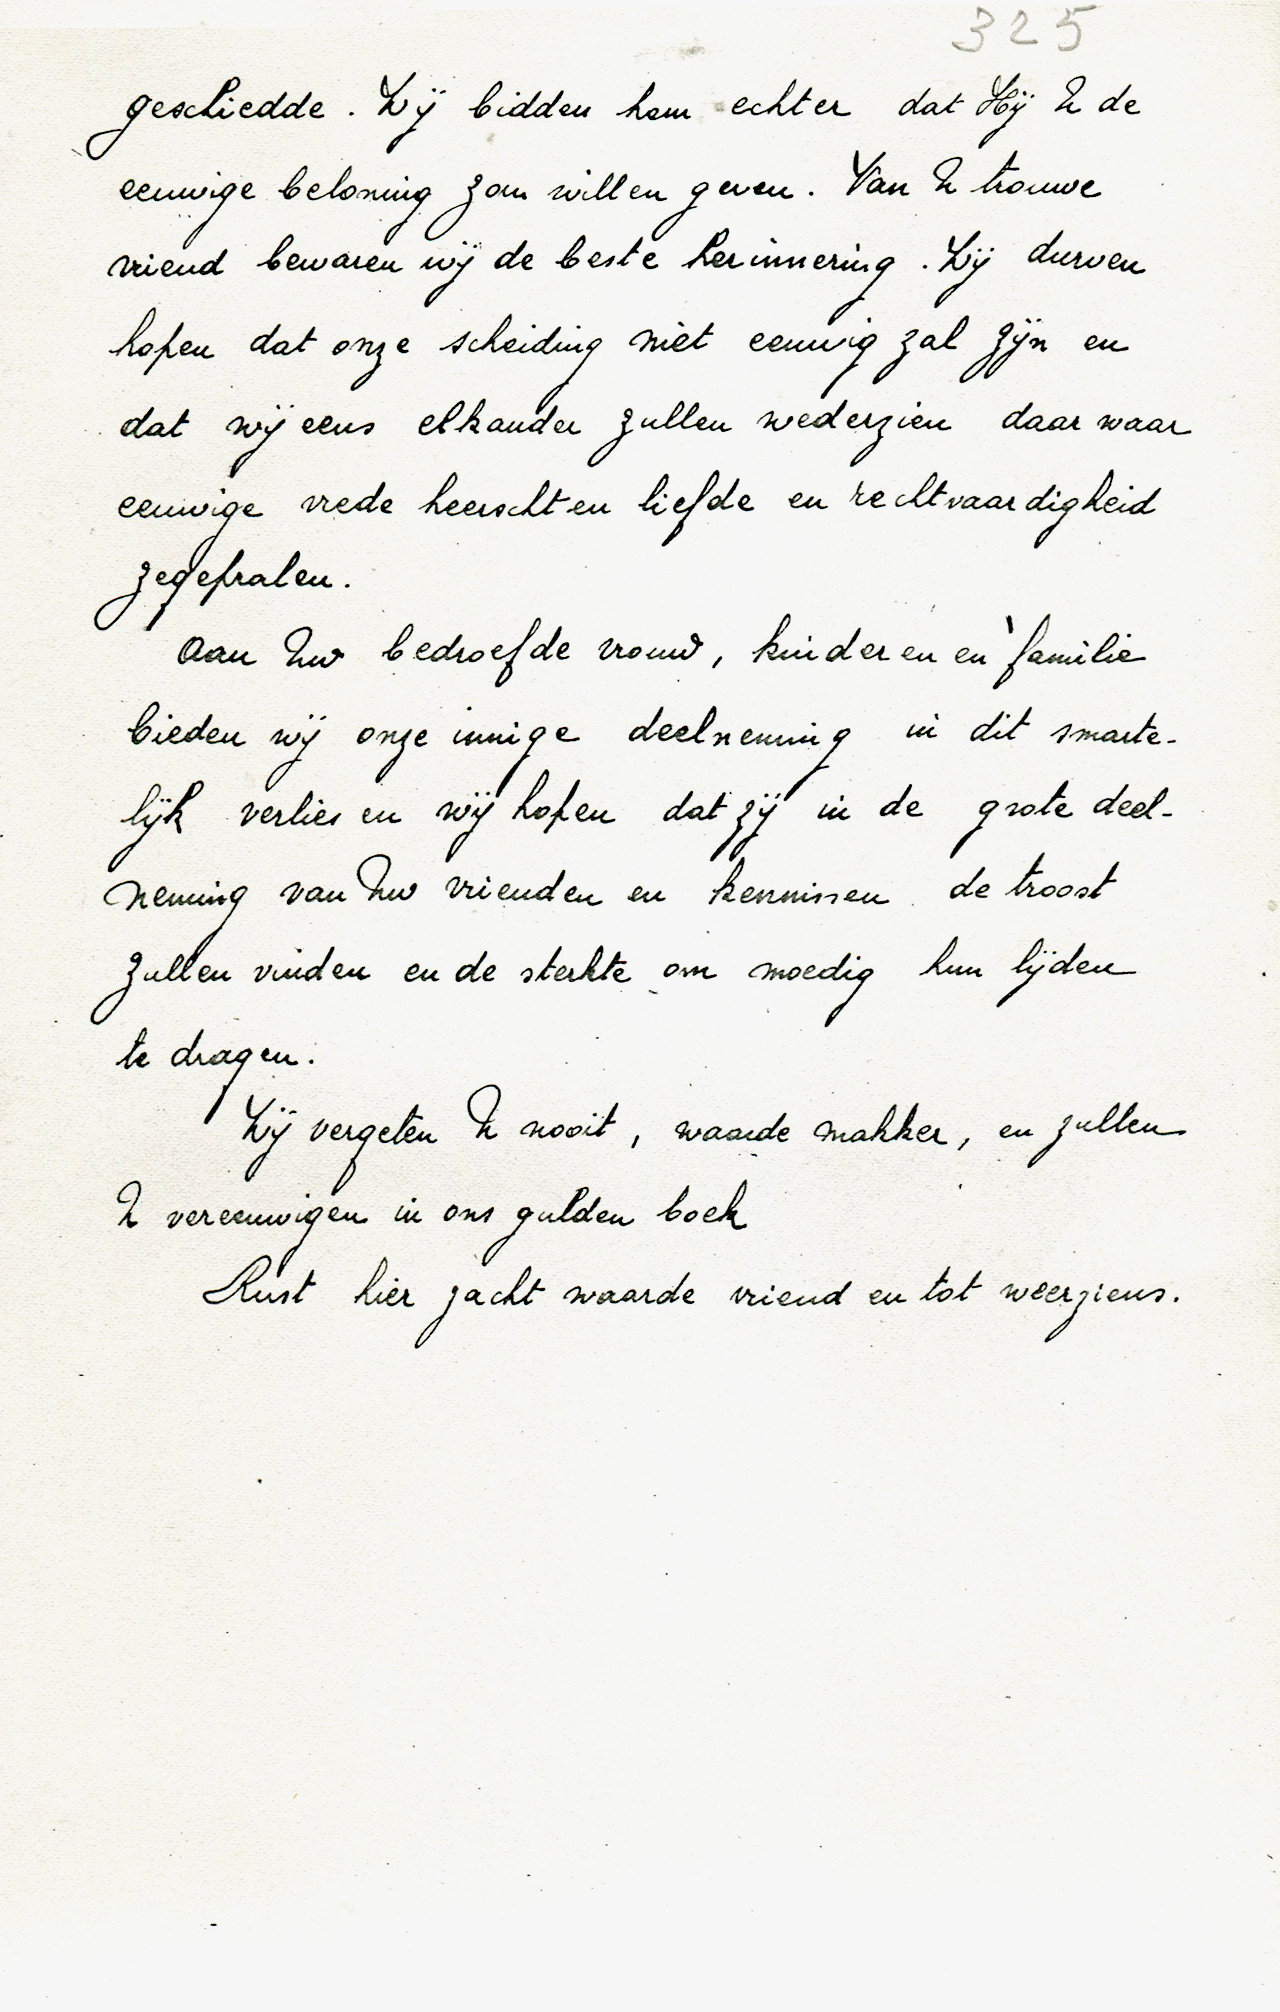 325
geschiedde. Wij bidden hem echter dat Hij U de
eeuwige beloning zou willen geven. Van U trouwe
vriend bewaren wij de beste herinnering. Wij durven
hopen dat onze scheiding niet eeuwig zal zijn en
dat wij eens elkander zullen wederzien daar waar
eeuwige vrede heerscht en liefde en rechtvaardigheid
zegepralen.
Aan Uw bedroefde vrouw, kinderen en familie
bieden wij onze innige deelneming in dit smarte-
lijk verlies en wij hopen dat zij in de grote deel-
neming van Uw vrienden en kennissen de troost
zullen vinden en de sterkte om moedig hun lijden
te dragen.
Wij vergeten U nooit, waarde makker, en zullen
U vereeuwigen in ons gulden boek
Rust hier zacht waarde vriend en tot weerziens.